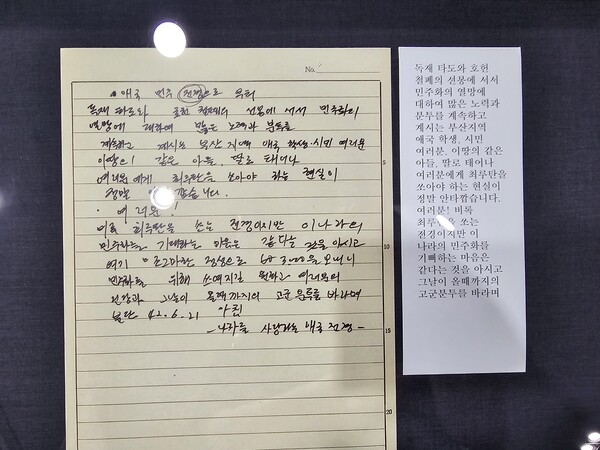 No.
애국 민주 전경으로 부터
독재 타도와 호헌 철폐의 선봉에 서서 민주화의
열망에 대하여 많은 노력과 분투를
계속하고 계시는 부산지역 애국 학생, 시민 여러분
이땅의 같은 아들, 딸로 태어나
여러분에게 최루탄을 쏘아야 하는 현실이
정말 안 같습니다.
여러분!
비록 최루탄을 쏘는 전경이지만 이나라의
민주화를 기대하는 마음은 같다는 것을 아시고
여기 조그마한 정성으로 보내니
민주화를 위해 쓰여지길 원하고 여러분의
건강과 그날이 올때까지의 고군분투를 바라며
6.21 아침
-나라를 사랑하는 애국 전경-
5
10
15
20
독재 타도와 호헌
철폐의 선봉에 서서
민주화의 열망에
대하여 많은 노력과
분투를 계속하고
계시는 부산지역
애국 학생, 시민
여러분, 이땅의 같은
아들, 딸로 태어나
여러분에게 최루탄을
쏘아야 하는 현실이
정말 안타깝습니다.
여러분! 비록
최루탄을 쏘는
전경이지만 이
나라의 민주화를
기뻐하는 마음은
같다는 것을 아시고
그날이 올때까지의
고군분투를 바라며